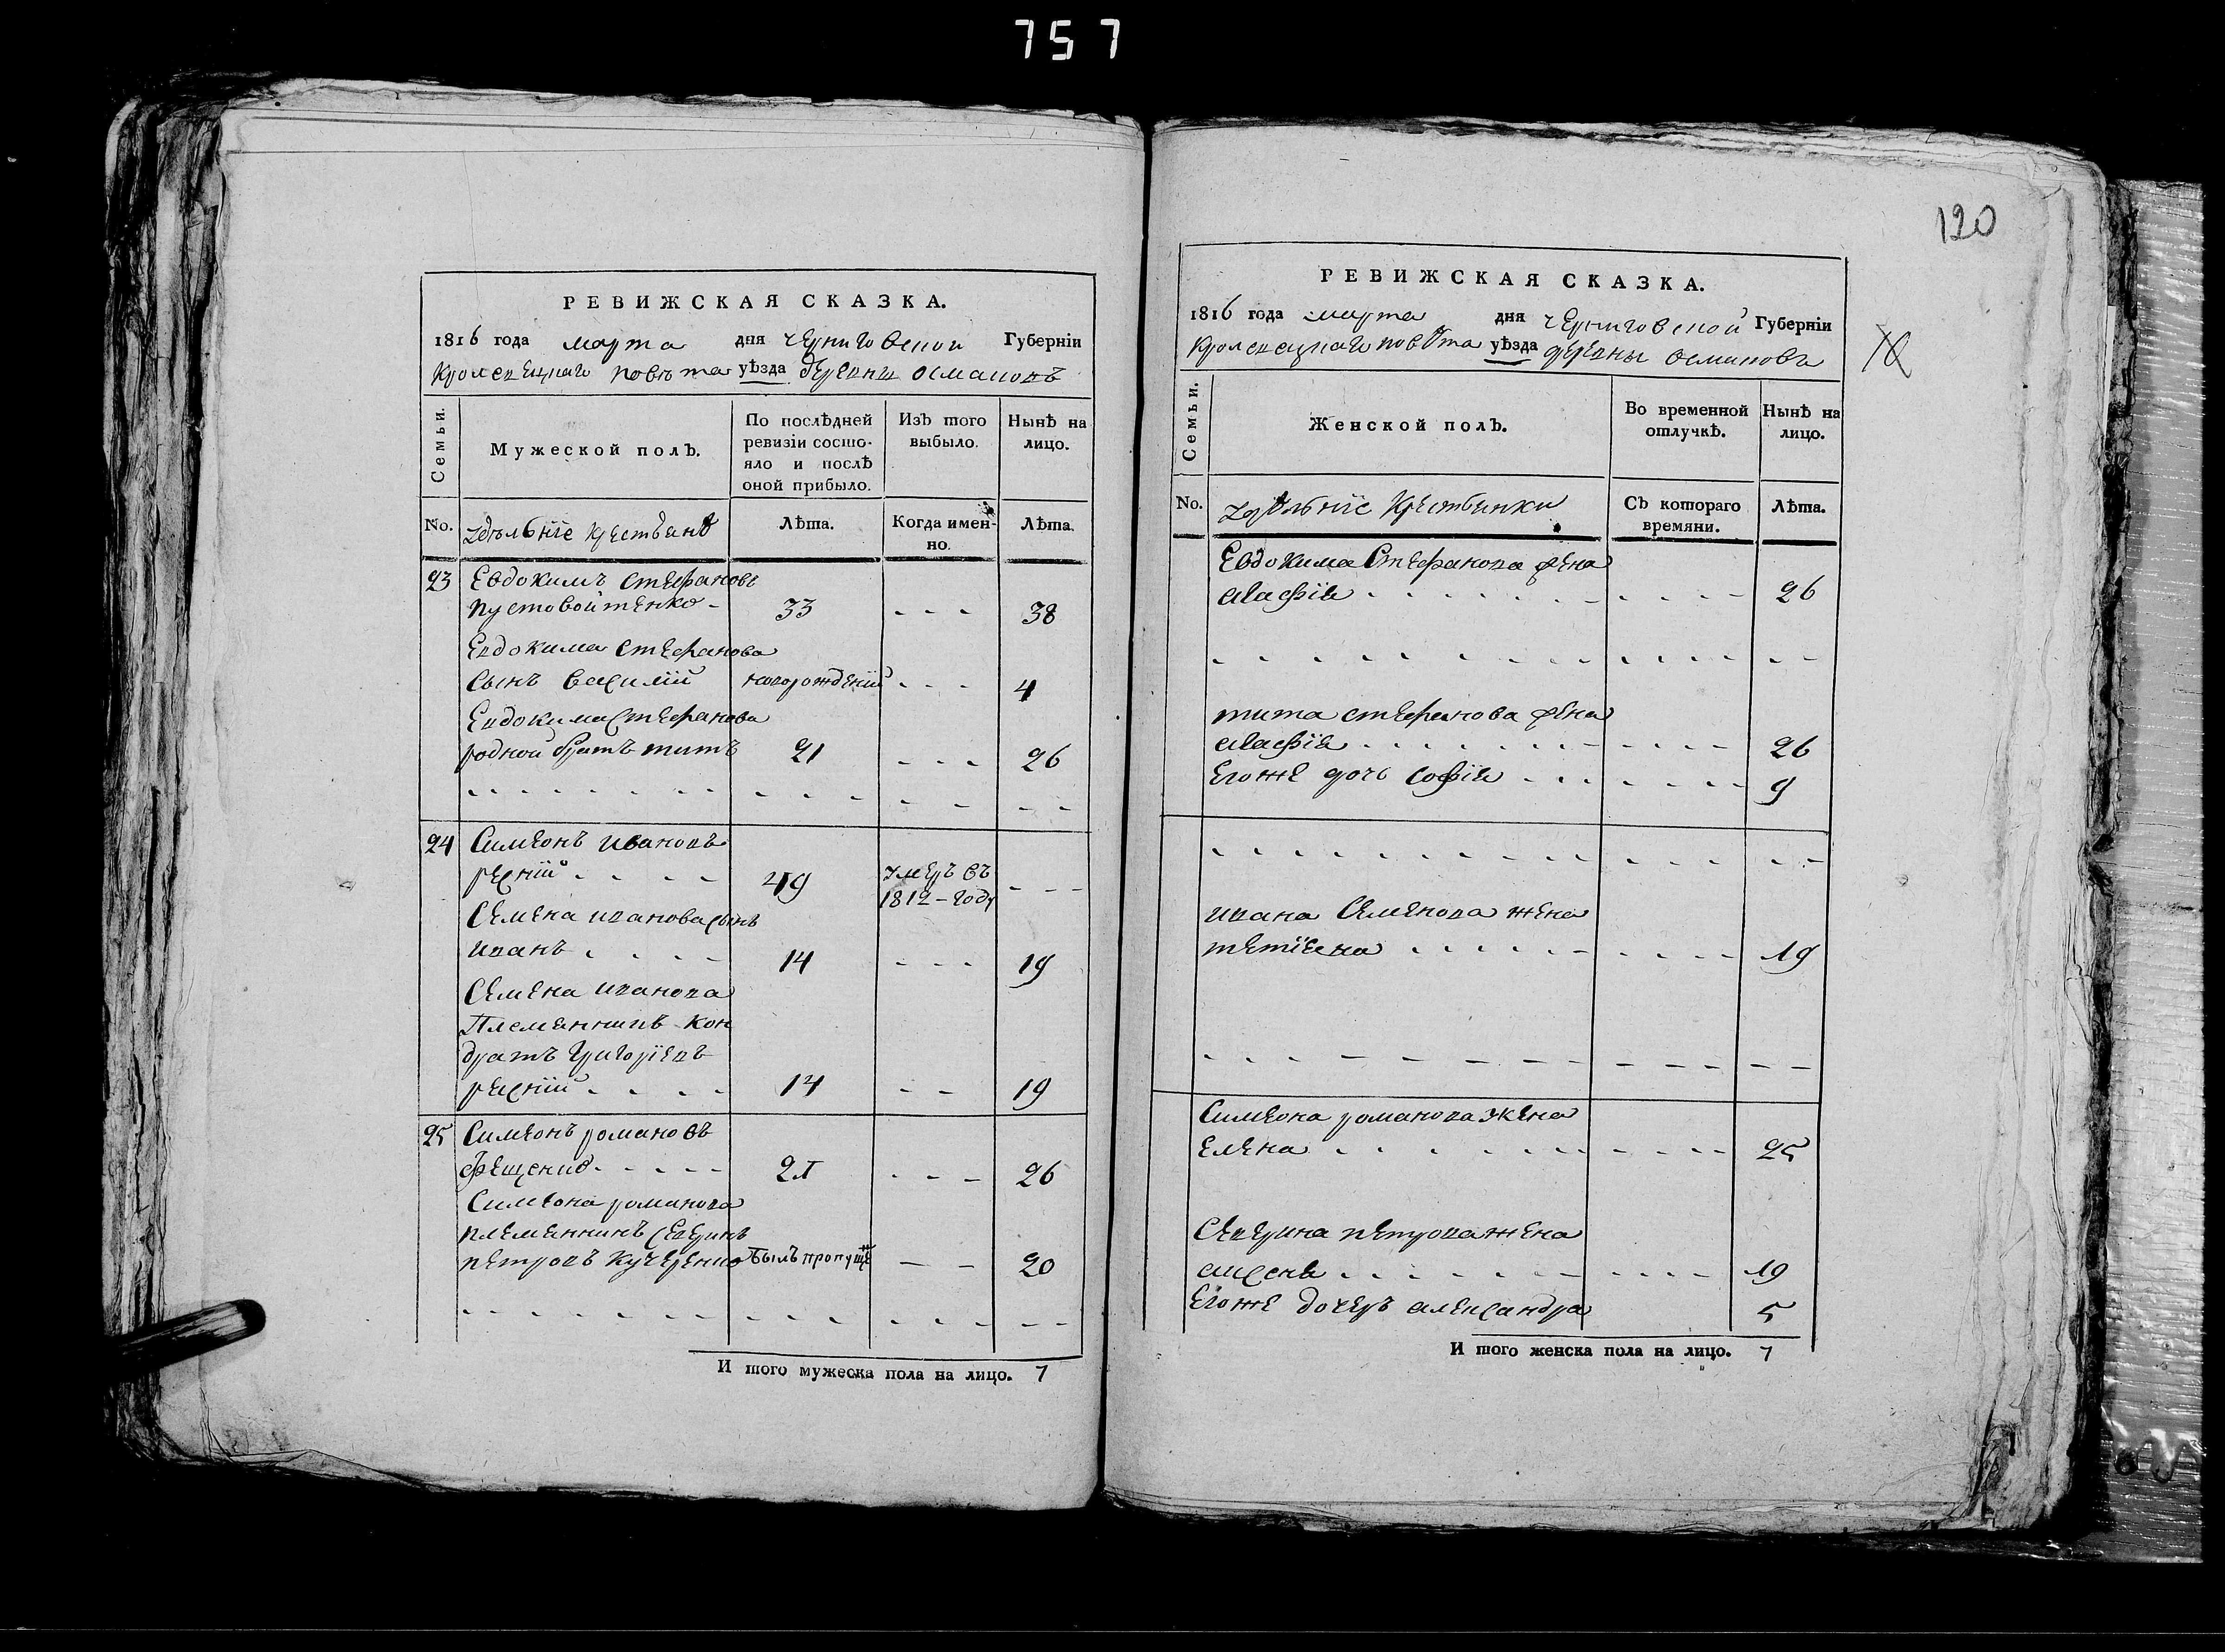 757
РЕВИЖСКАЯ СКАЗКА.
1816 года марта дня черниговской Губерніи
Кролевецкаго повѣта уѣзда деревни Османовъ
Семьи.
Мужеской полъ.
По послѣдней ревизіи состояло и послѣ оной прибыло.
Изъ того выбыло.
Нынѣ на лицо.
No.
удѣльніе крестьянѣ
Лѣта.
Когда именно.
Лѣта.
23 Евдокимъ Стефановъ
пустовойтенко - 33 - - - 38
Евдокима Стефанова
Сынъ Василій новорожденій - - - 4
Евдокима Стефанова
родной братъ титъ 21 - - - 26
24 Симеонъ Ивановъ
49 умеръ въ
1812 - году - - -
Семена иванова сынъ
иванъ - - - - 14 - - - 19
Семена иванова
Племянникъ Кон
дратъ григоріевъ
14 - - 19
25 Симеонъ романовъ
фещенко - - - - 21 - - - 26
Симеона романова
племянникъ Северинъ
петровъ кучеренко былъ пропуще - - 20
И того мужеска пола на лицо. 7
120
РЕВИЖСКАЯ СКАЗКА.
1816 года марта дня черниговской Губерніи
Кролевецкаго повѣта уѣзда деревни Османовъ
Семьи.
Женской полъ.
Во временной отлучкѣ.
Нынѣ на лицо.
No.
удѣльніе Крестьянки
Съ котораго времяни.
Лѣта.
Евдокима Стефанова жена
агафія - - - - 26
тита стефанова жена
агафія - - - - 26
Егоже дочь Софія - - - 9
ивана Семенова жена
тетіяна - - - - 19
Симеона романова жена
Елена - - - - 25
Северина петрова жена
аксеня - - - - 19
Егоже дочеръ александра 5
И того женска пола на лицо. 7